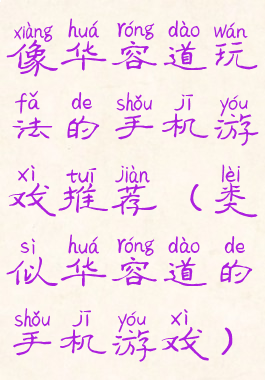 xiàng huá róng dào wán
像华容道玩
fǎ de shǒu jī yóu
法的手机游
xì tuī jiàn lèi
戏推荐（类
sì huá róng dào de
似华容道的
shǒu jī yóu xì
手机游戏）